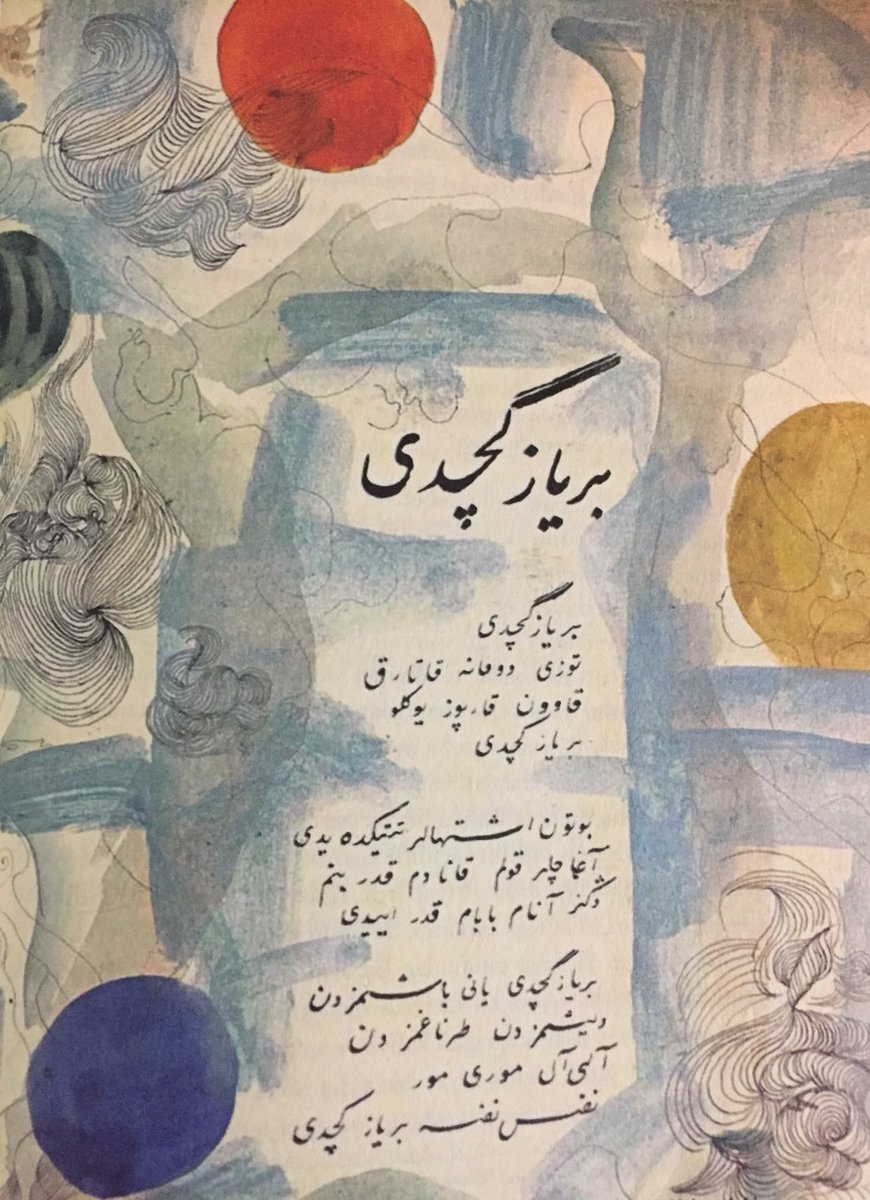 بر یاز گچدی
بر یاز گچدی
توزی دومانه قاتارق
قاوون قارپوز یوکلو
بر یاز گچدی
بوتون اشتهالر تتیکده یدی
آغاجلر قولم قانادم قدر بنم
دکز آنام بابام قدر اییدی
بر یاز گچدی یانی باشمزدن
دیشمزدن طرناغمزدن
آلی آل موری مور
نفس نفسه بر یاز گچدی